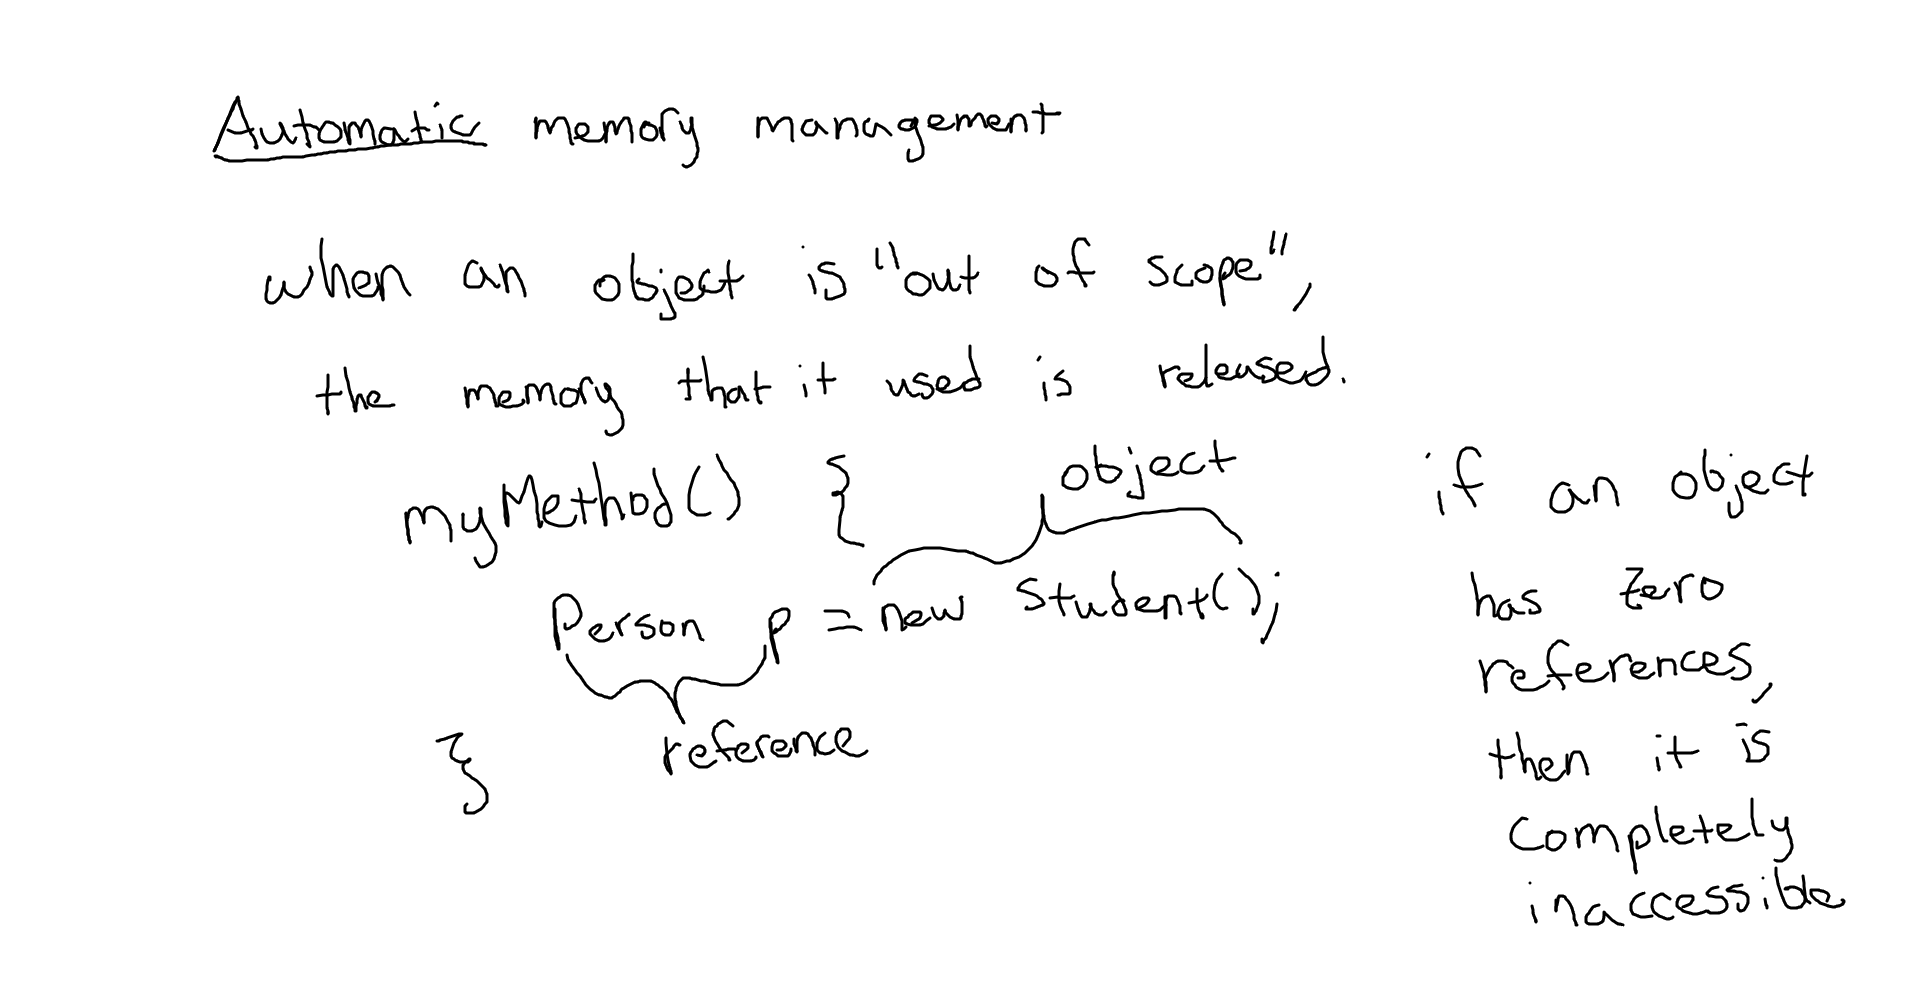 Automatic memory management
when an object is "out of scope",
the memory that it used is released.
myMethod() {
object
Person p = new Student();
reference
}
if an object
has zero
references,
then it is
completely
inaccessible